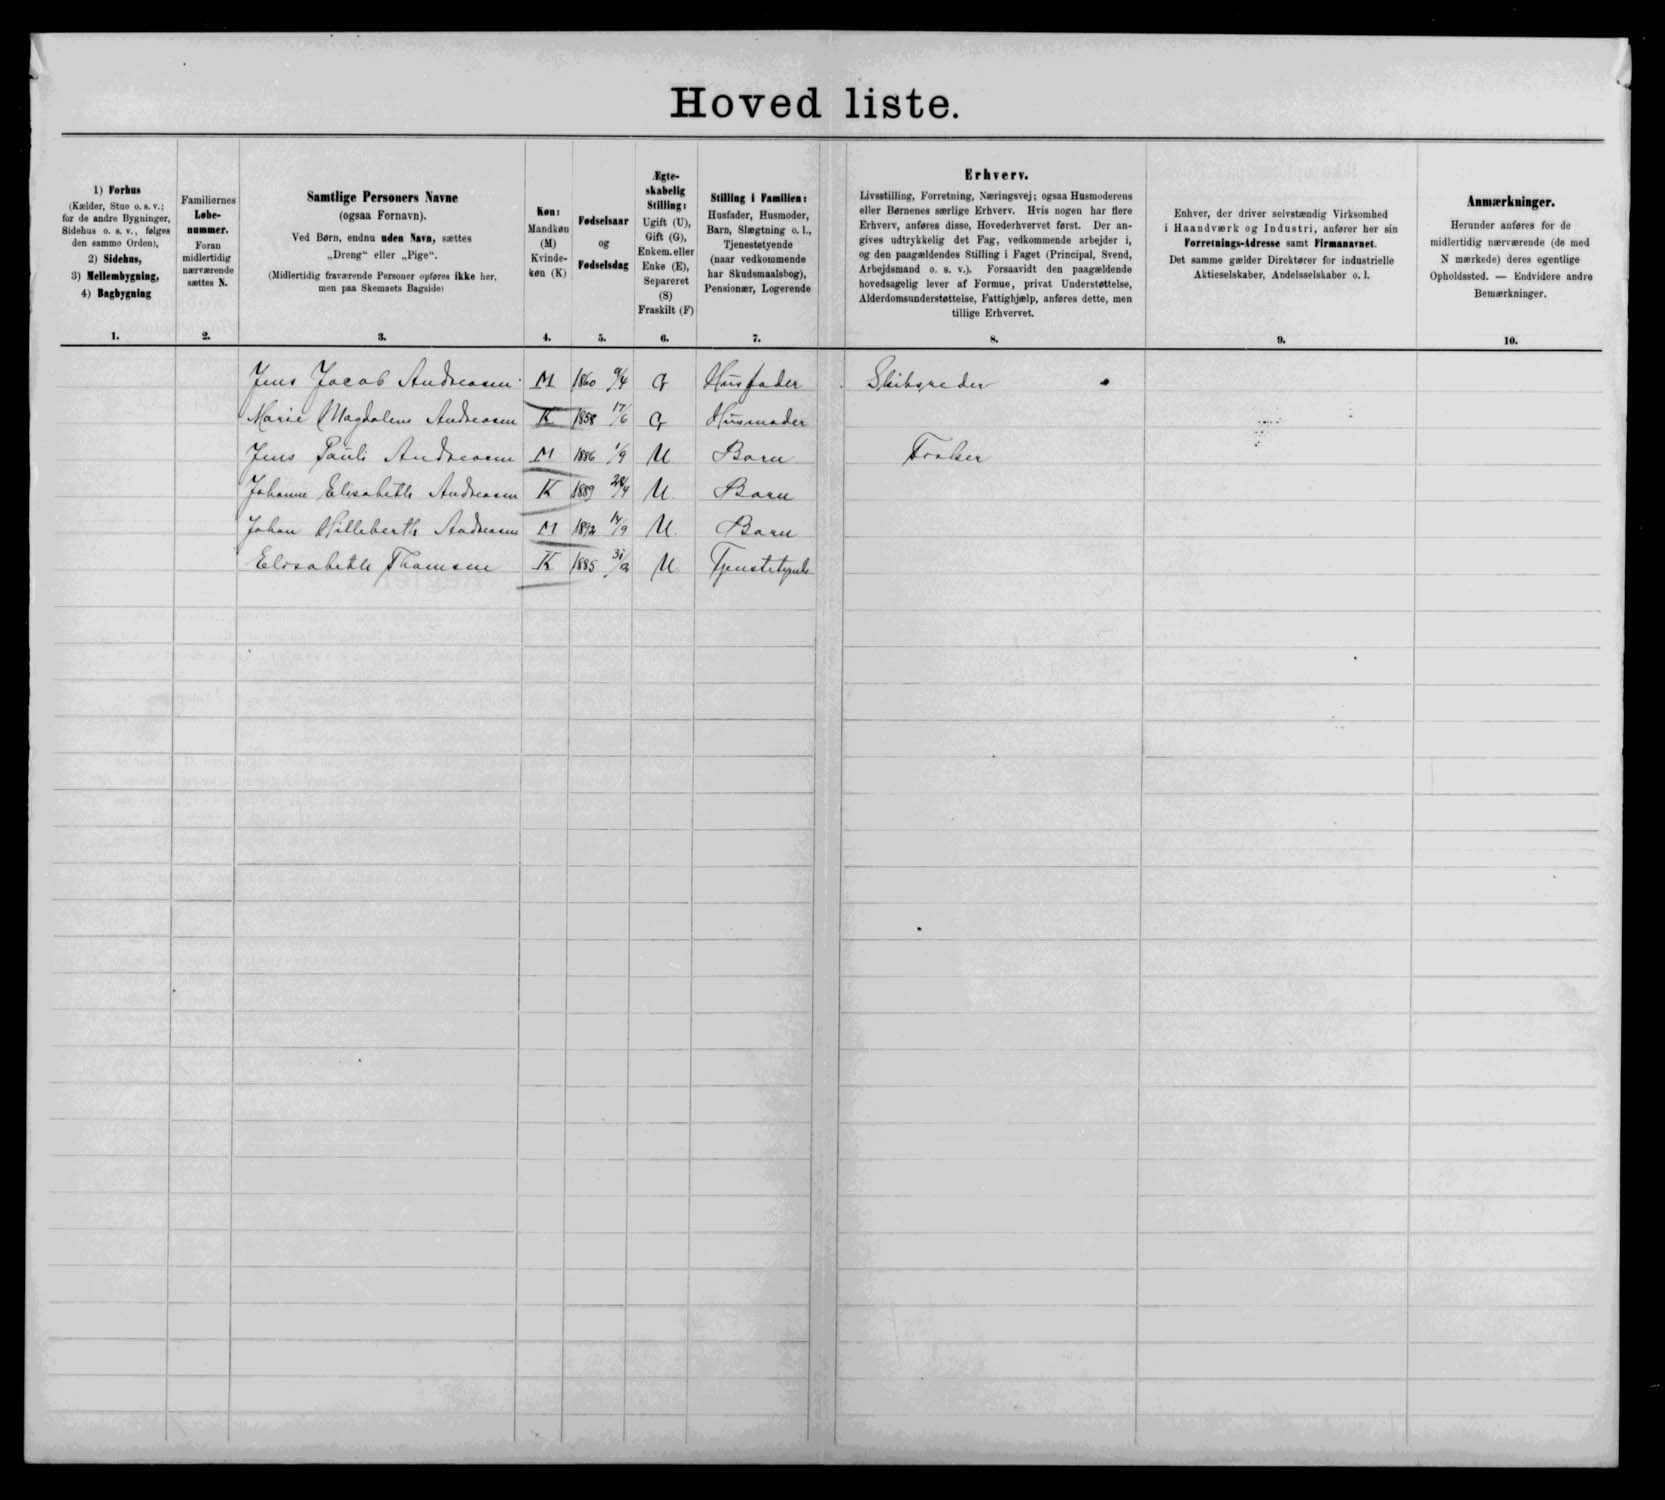 Hoved liste.
1) Forhus
(Kælder, Stue o. s. v.;
for de andre Bygninger,
Sidehus o. s. v., følges
den samme Orden),
2) Sidehus,
3) Mellembygning,
4) Bagbygning
1.
Familiernes
Løbe-
nummer.
Foran
midlertidig
nærværende
sættes N.
2.
Samtlige Personers Navne
(ogsaa Fornavn).
Ved Børn, endnu uden Navn, sættes
„Dreng" eller „Pige".
(Midlertidig fraværende Personer opføres ikke her,
men paa Skemaets Bagside)
3.
Køn:
Mandkøn
(M)
Kvinde-
køn (K)
4.
Fødselsaar
og
Fødselsdag
5.
Ægte-
skabelig
Stilling:
Ugift (U),
Gift (G),
Enkem. eller
Enke (E),
Separeret
(S)
Fraskilt (F)
6.
Stilling i Familien:
Husfader, Husmoder,
Barn, Slægtning o. l.,
Tjenestetyende
(naar vedkommende
har Skudsmaalsbog),
Pensionær, Logerende
7.
Erhverv.
Livsstilling, Forretning, Næringsvej; ogsaa Husmoderens
eller Børnenes særlige Erhverv. Hvis nogen har flere
Erhverv, anføres disse, Hovederhvervet først. Der an-
gives udtrykkelig det Fag, vedkommende arbejder i,
og den paagældendes Stilling i Faget (Principal, Svend,
Arbejdsmand o. s. v.). Forsaavidt den paagældende
hovedsagelig lever af Formue, privat Understøttelse,
Alderdomsunderstøttelse, Fattighjælp, anføres dette, men
tillige Erhvervet.
8.
Enhver, der driver selvstændig Virksomhed
i Haandværk og Industri, anfører her sin
Forretnings-Adresse samt Firmanavnet.
Det samme gælder Direktører for industrielle
Aktieselskaber, Andelsselskaber o. l.
9.
Anmærkninger.
Herunder anføres for de
midlertidig nærværende (de med
N mærkede) deres egentlige
Opholdssted. — Endvidere andre
Bemærkninger.
10.
Jens Jacob Andreasen M 1860 9/4 G Husfader Skibsreder
Marie Magdalene Andreasen K 1858 17/6 G Husmoder
Jens Pauli Andreasen M 1886 1/9 U Barn
Johanne Elisabeth Andreasen K 1889 28/4 U. Barn
Johan Andreasen M 1892 14/9 U. Barn
Elisabeth Thomsen K 1885 U.